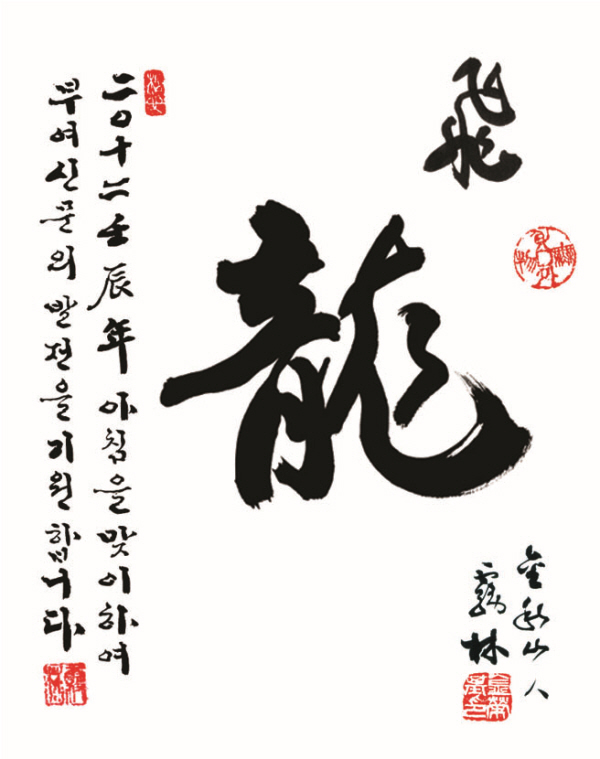 飛
龍
二〇十二壬辰年 아침을 맞이하여
부여신문의 발전을 기원합니다
山人
霧林